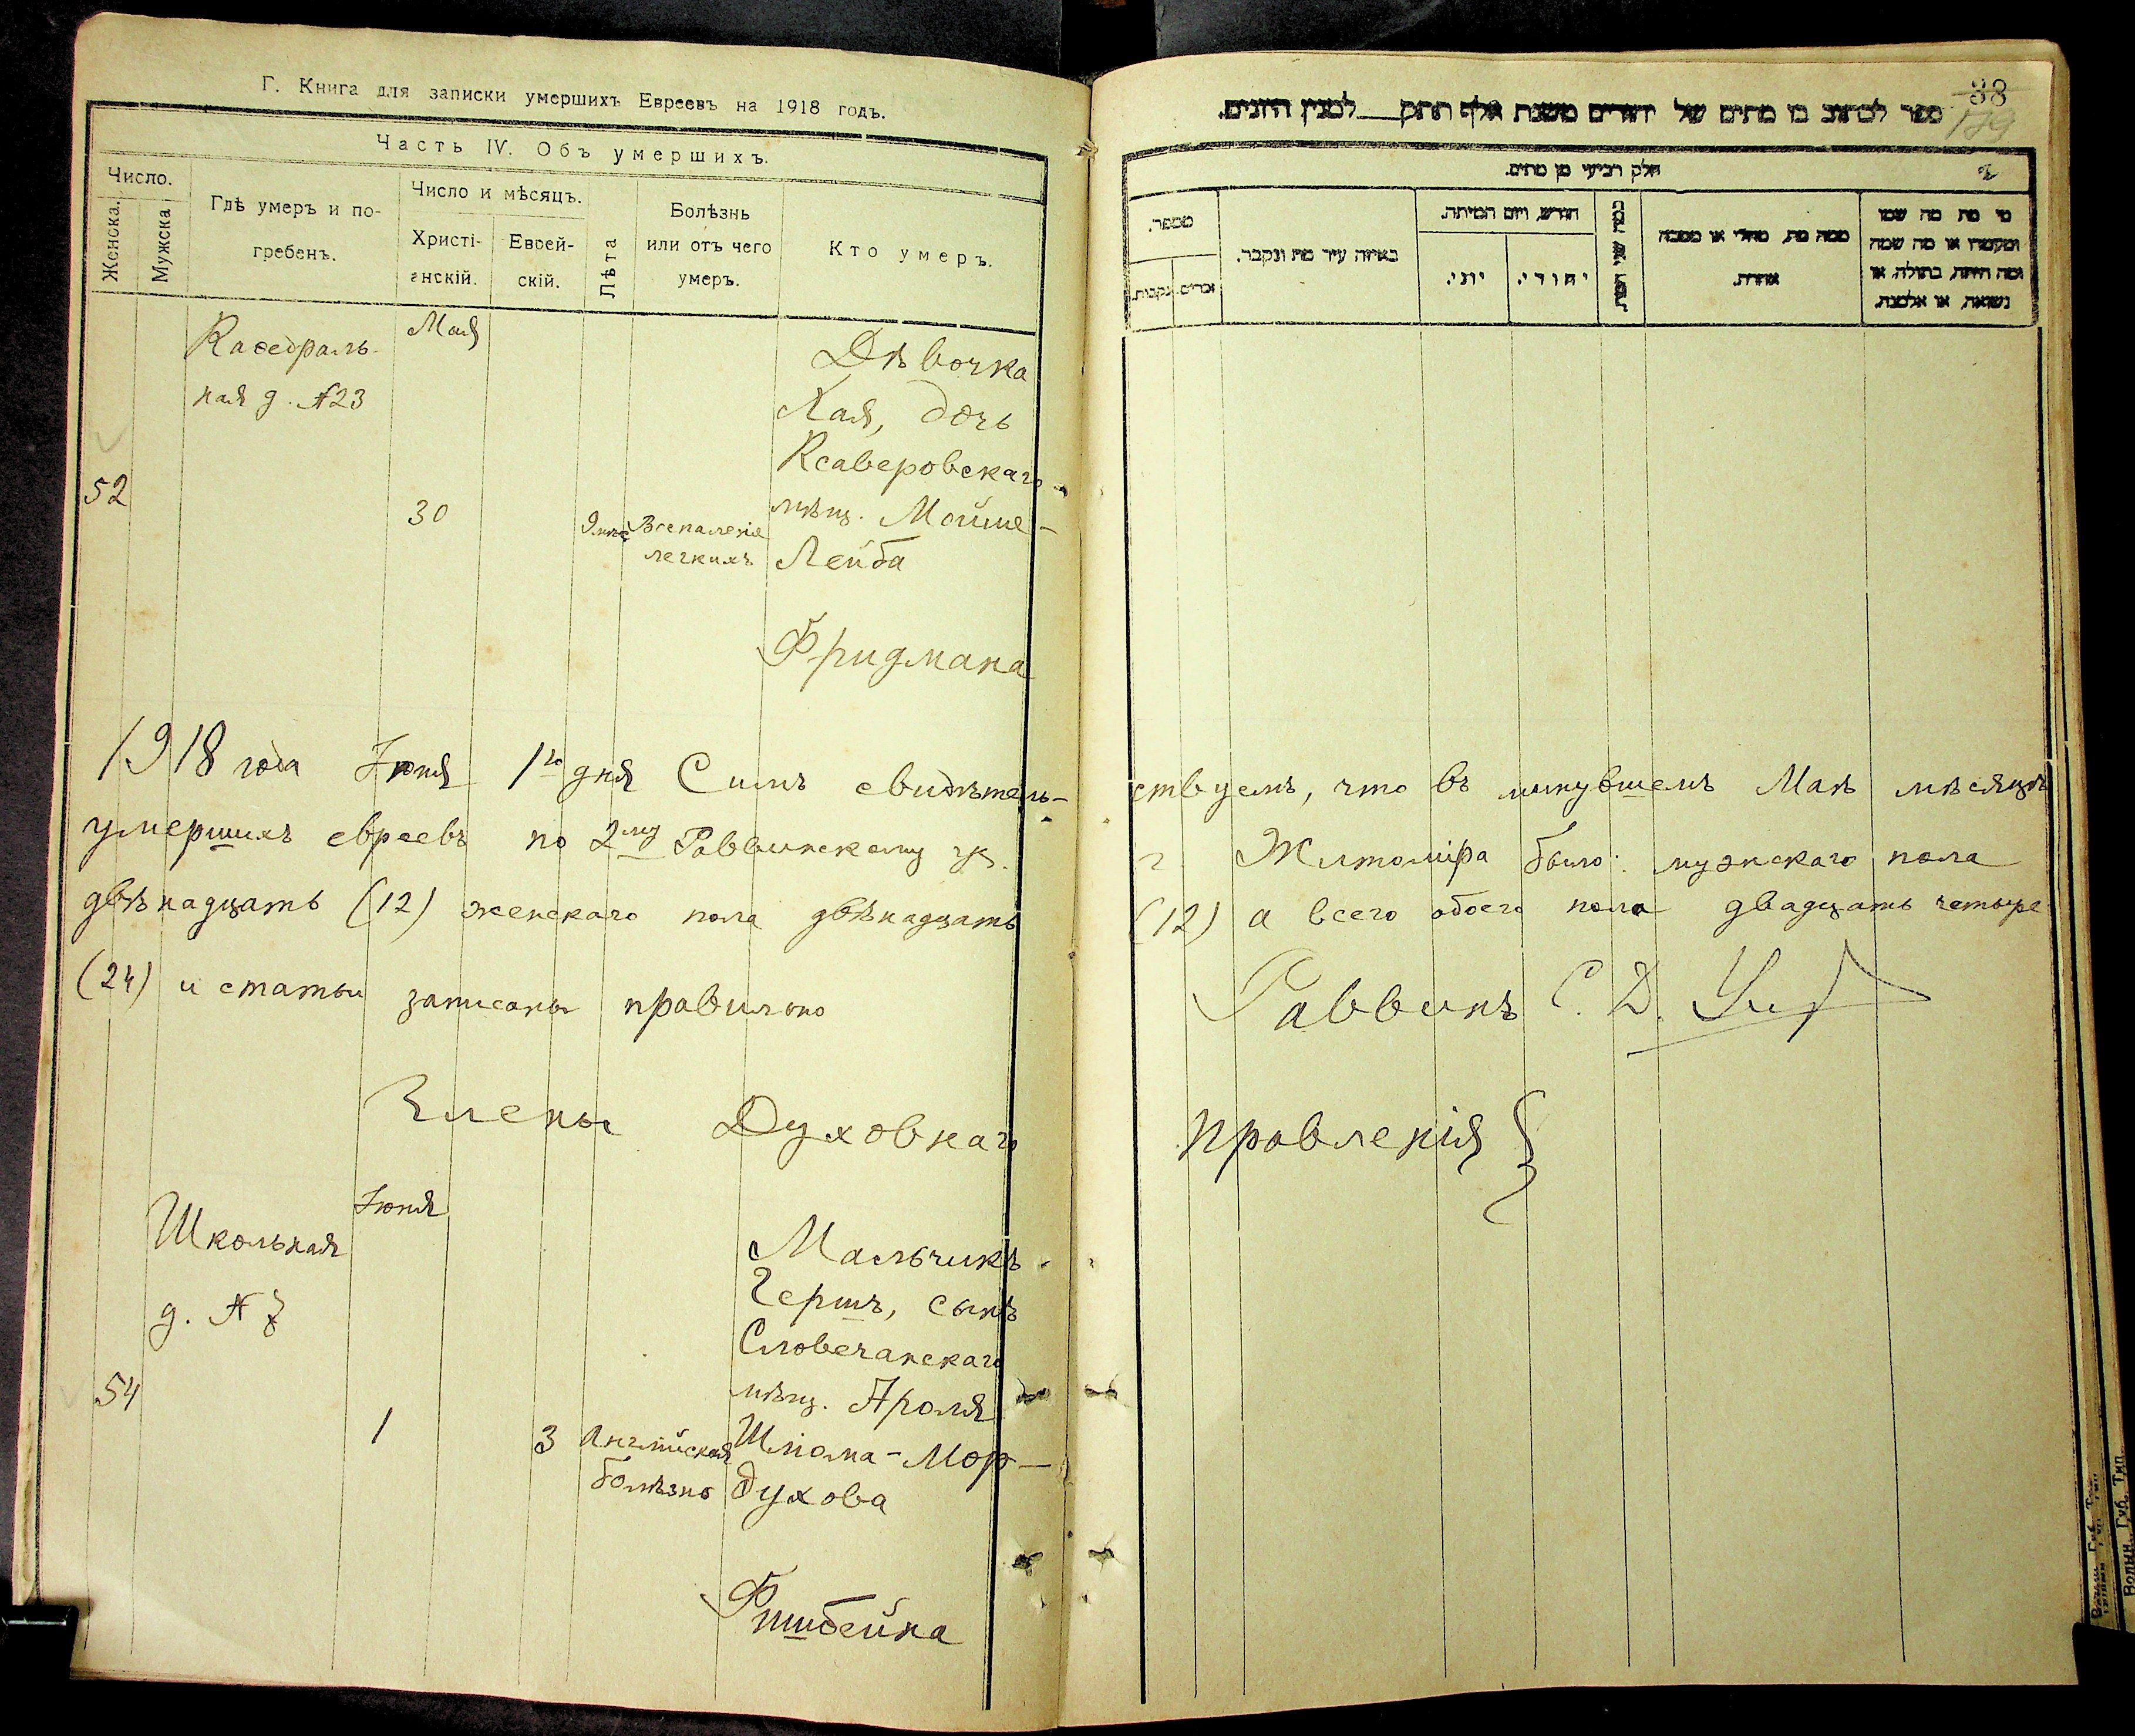 Г. Книга для записки умершихъ Евреевъ на 1918 годъ.
Часть IV. Объ умершихъ.
Число.
Женска.
Мужска
Гдѣ умеръ и по-
гребенъ.
Число и мѣсяцъ.
Христі-
анскій.
Еврей-
скій.
Лѣта
Болѣзнь
или отъ чего
умеръ.
Кто умеръ.
Каѳедраль-
ная д. №23
Мая
52
30
9 мѣс
Воспаленіе
легкихъ
Дѣвочка
Хая, дочь
Ксаверовскаго
мѣщ. Мойше-
Лейба
Фридмана
1918 года Іюня 1го дня Симъ свидѣтель-
умершихъ евреевъ по 2му Раввинскому уч.
двѣнадцать (12) женскаго пола двѣнадцать
(24) и статьи записаны правильно
Члены Духовнаго
Школьная
д. № 7
Іюня
54
1
3
Англійская
болѣзнь
Мальчикъ
Гершъ, сынъ
Словечанскаго
мѣщ. Арона
Шлома-Мор-
духова
Фишбейна
38
179
ספר לכתוב בו מתים של יהודים משנת אלף תתק__למנין היונים.
חלק רביעי מן מתים.
מספר.
זכרים.
נקבות.
באיזה עיר מת ונקבר.
חודש, ויום המיתה.
יוני.
יהודי.
ממה מת, מחלי או מסבה
אחרת.
מי מת מה שמו
ומעמדו או מה שמה
ומה היתה, בתולה, או
נשואה, או אלמנה.
ствуемъ, что въ минувшемъ Маѣ мѣсяцѣ
г. Житоміра было: мужскаго пола
(12) а всего обоего пола двадцать четыре
Раввинъ С. Д.
правленія
Волын. Губ. Тип.